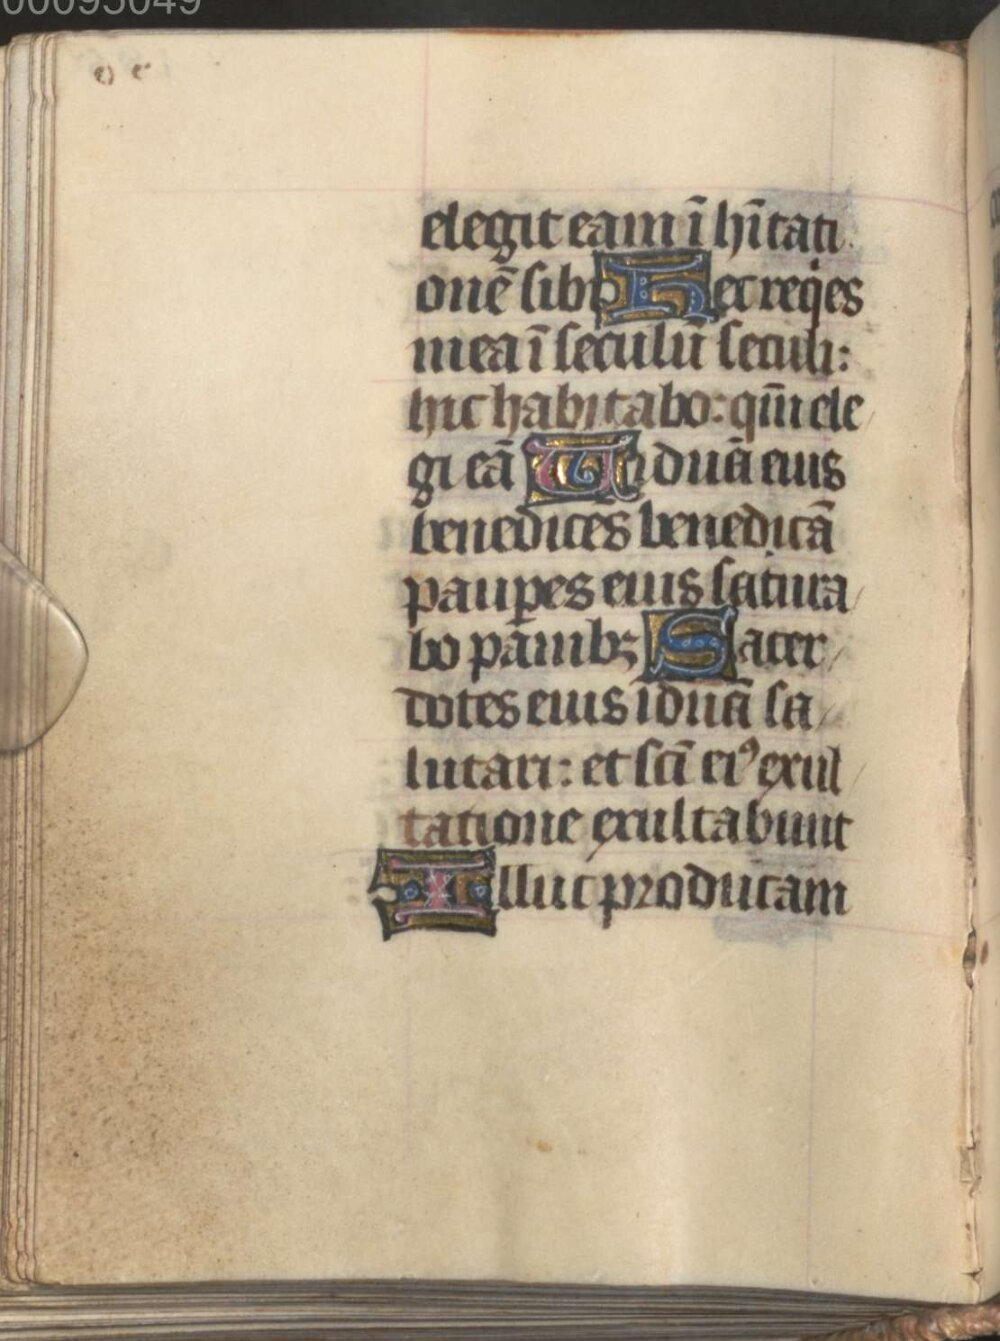 00095049
elegit eam ī hītati
onē sibi Hec reqies
mea ī seculū seculi:
hic habitabo: qm̄ ele
gi eā Viduā eius
benedices benedicā
paupes eius satura
bo panibꝫ Sacer
dotes eius īduā sa
lutari: et scī eiꝰ exul
tatione exultabunt
Illuc producam